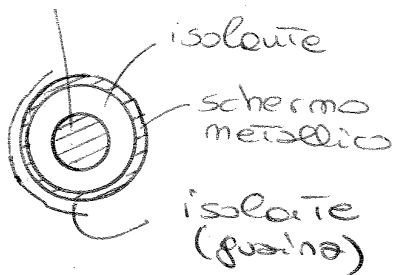 isolante
schermo
metallico
isolante
(guaina)